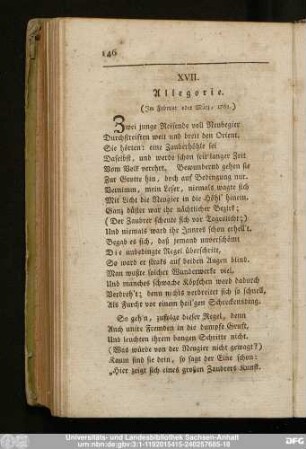 146
XVII.
Allegorie.
(Im Februar oder März, 1781.)
Zwei junge Reisende voll Neubegier
Durchstreiften weit und breit den Orient.
Sie hörten: eine Zauberhöhle sei
Daselbst, und werde schon seit langer Zeit
Vom Volk verehrt. Bewundernd gehen sie
Zur Grotte hin, doch auf Bedingung nur.
Vernimm, mein Leser, niemals wagte sich
Mit Licht die Neugier in die Höhl' hinein,
Ganz düster war ihr nächtlicher Bezirk;
(Der Zaubrer scheute sich vor Tageslicht;)
Und niemals ward ihr Innres schon erhellt.
Begab es sich, daß jemand unverschämt
Die unbedingte Regel überschritt,
So ward er straks auf beiden Augen blind.
Man wußte solcher Wunderwerke viel.
Und manches schwache Köpfchen ward dadurch
Verdreh't; denn nichts verbreitet sich so schnell,
Als Furcht vor einem heil'gen Schreckensding.
So geh'n, zufolge dieser Regel, denn
Auch unsre Fremden in die dumpfe Gruft,
Und leuchten ihrem bangen Schritte nicht.
(Was würde von der Neugier nicht gewagt?)
Kaum sind sie drin, so sagt der Eine schon:
„Hier zeigt sich eines großen Zaubrers Kunst.
Universitäts- und Landesbibliothek Sachsen-Anhalt
urn:nbn:de:gbv:3:1-1192015415-240257685-18
DFG